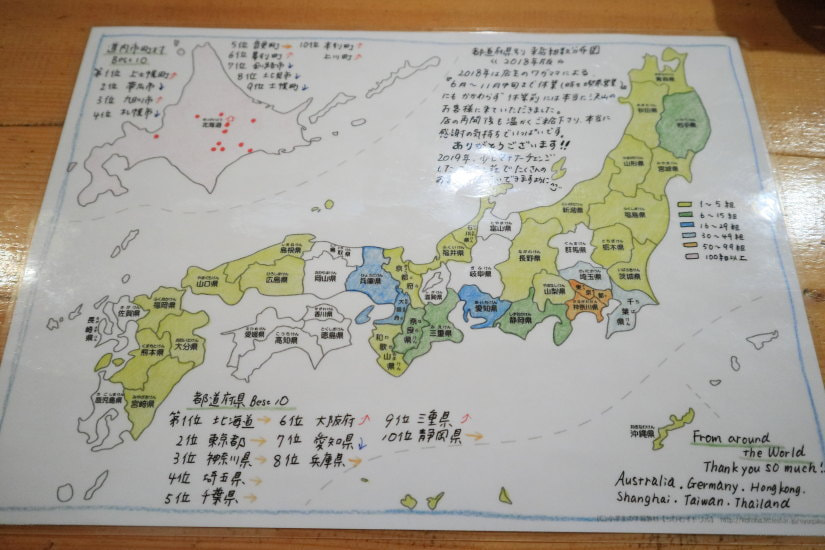 道内市町村
Best 10
第1位 上士幌町
2位 帯広市
3位
4位 札幌市
5位 音更町
6位 幕別町
7位 釧路市
8位 北見市
9位 士幌町
10位 本別町
上川町
北海道
2018年
2018年は店主のワガママによる
6月〜11月中旬まで休業
にもかかわらず 休業前には本当に沢山の
お客様に来ていただきました。
店の再開後も温かくご来店下さり、本当に
感謝の気持ちでいっぱいです。
ありがとうございます!!
2019年、少し
青森県
秋田県
岩手県
山形県
宮城県
新潟県
福島県
富山県
石川県
福井県
長野県
群馬県
栃木県
茨城県
埼玉県
山梨県
東京都
神奈川県
千葉県
岐阜県
静岡県
愛知県
三重県
滋賀県
京都府
大阪府
奈良県
和歌山県
兵庫県
鳥取県
岡山県
島根県
広島県
山口県
香川県
徳島県
愛媛県
高知県
福岡県
佐賀県
長崎県
大分県
熊本県
宮崎県
鹿児島県
沖縄県
1〜5組
6〜15組
16〜29組
30〜49組
50〜99組
100組以上
都道府県 Best 10
第1位 北海道
2位 東京都
3位 神奈川県
4位 埼玉県
5位 千葉県
6位 大阪府
7位 愛知県
8位 兵庫県
9位 三重県
10位 静岡県
From around
the World
Thank you so much!!
Australia. Germany. Hongkong.
Shanghai. Taiwan. Thailand